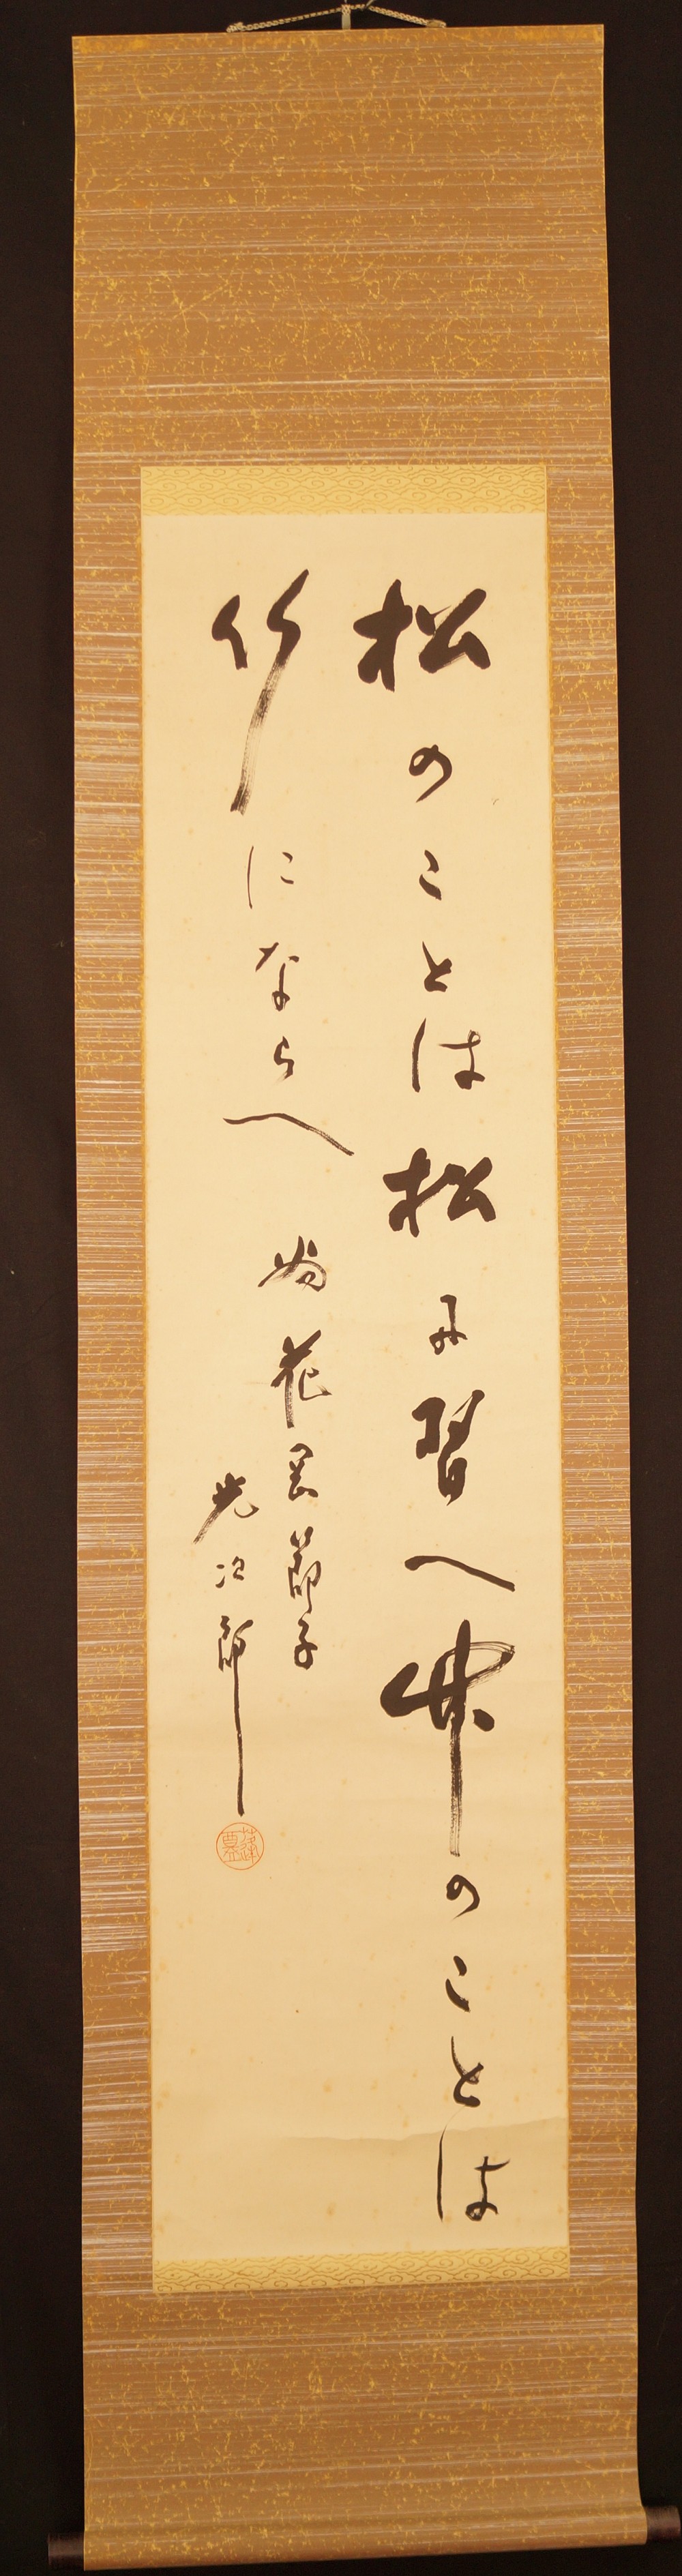 松のことは松に習へ竹のことは
竹にならへ
為花岡節子
光次郎